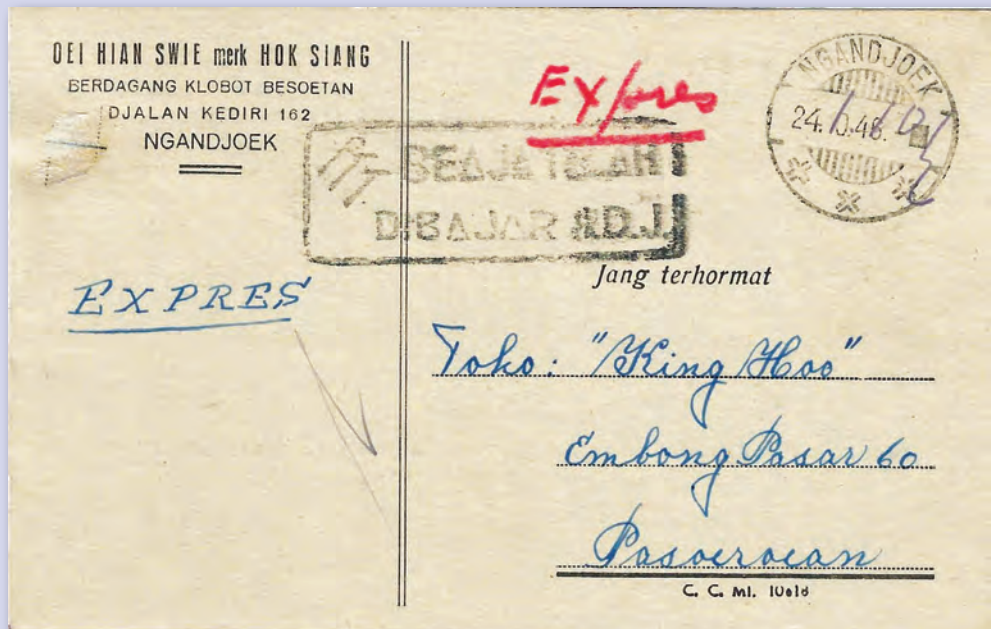 OEI HIAN SWIE merk HOK SIANG
BERDAGANG KLOBOT BESOETAN
DJALAN KEDIRI 162
NGANDJOEK
Expres
NGANDJOEK
PTT. BEAJA TELAH
DIBAJAR
EXPRES
Jang terhormat
Toko: "King Hoo"
Embong Pasar 60
Pasoeroean
C. C. Ml.